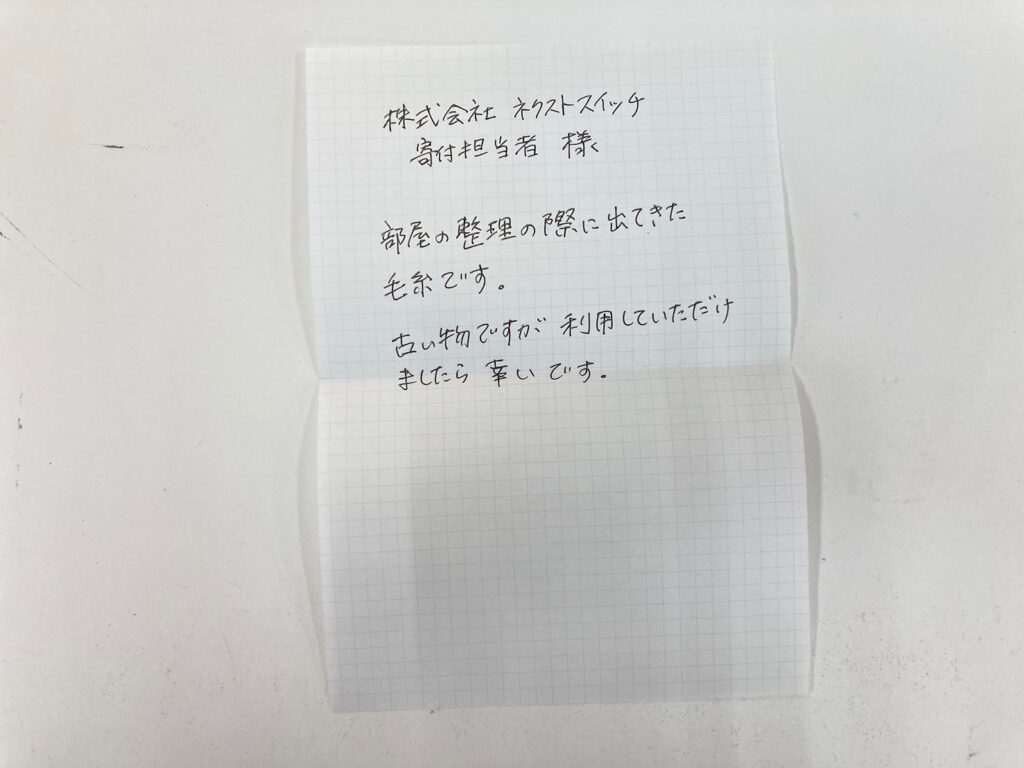 株式会社 ネクストスイッチ
寄付担当者 様
部屋の整理の際に出てきた
毛糸です。
古い物ですが 利用していただけ
ましたら 幸いです。